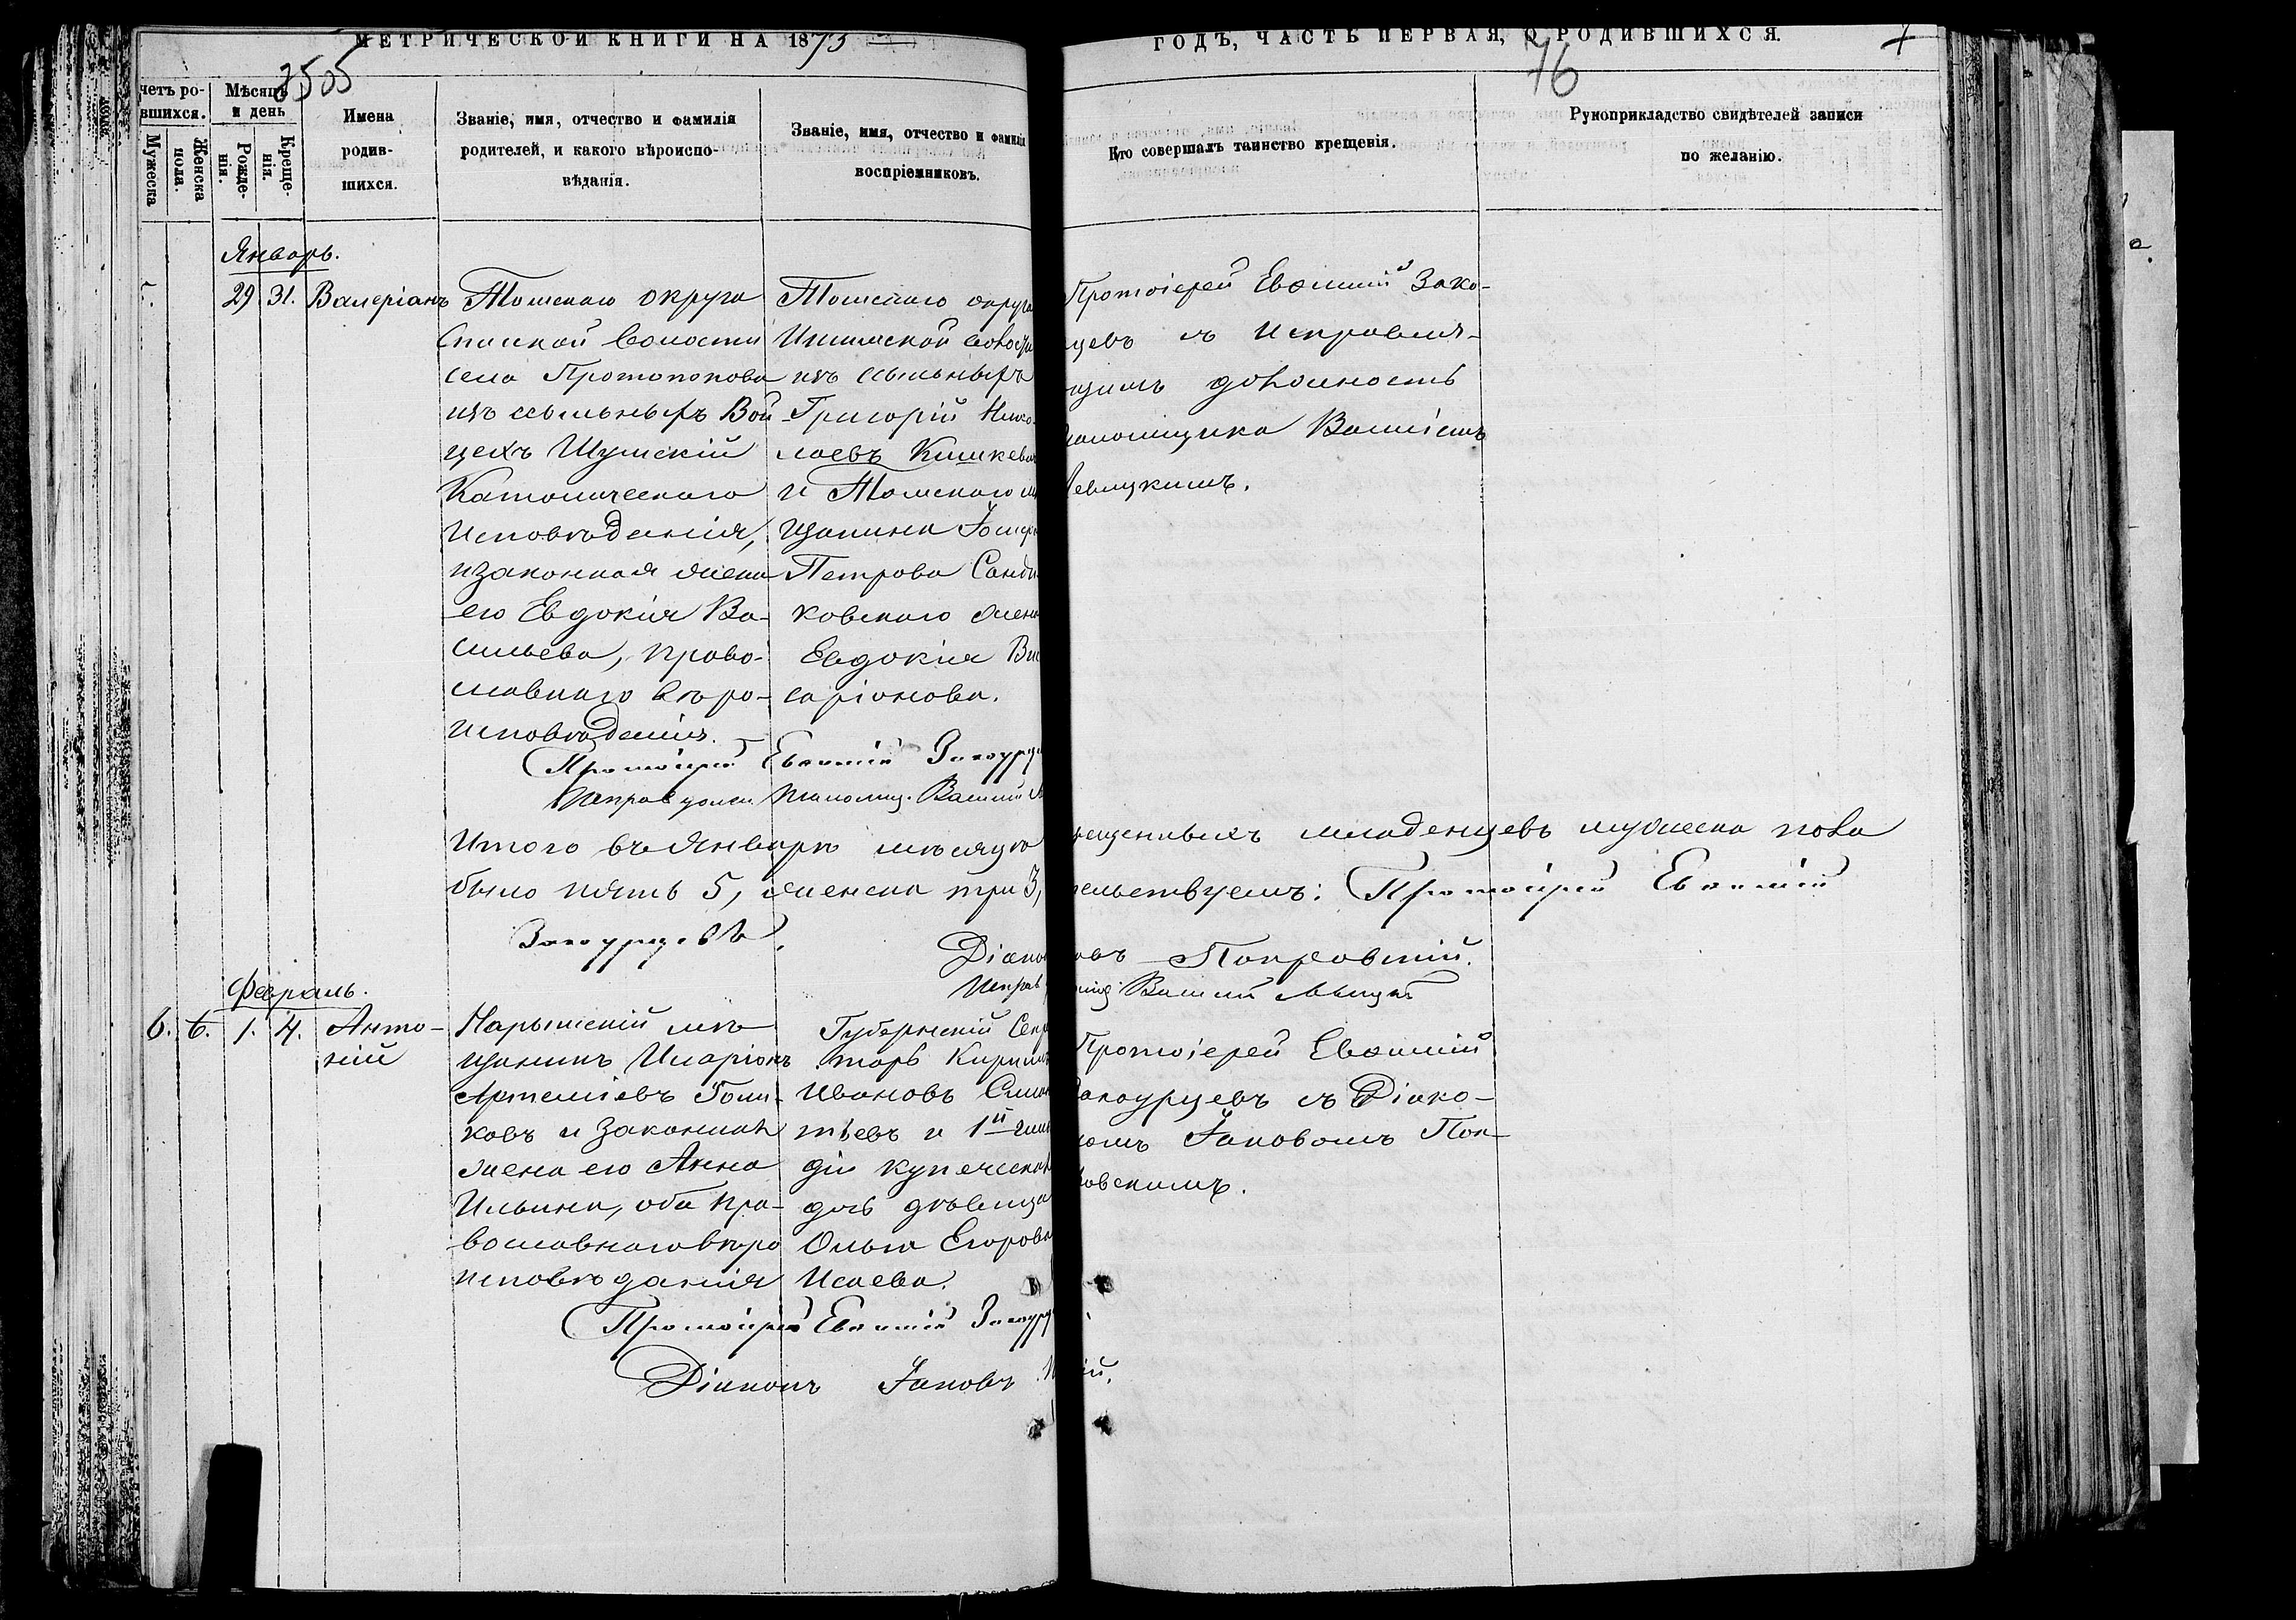 МЕТРИЧЕСКОЙ КНИГИ НА 1873
ГОДЪ, ЧАСТЬ ПЕРВАЯ, О РОДИВШИХСЯ.
7
3505
76
четъ ро-
вшихся.
Мѣсяцъ
и день
Мужеска
Женска
пола.
Рожде-
нія.
Креще-
нія.
Имена
родив-
шихся.
Званіе, имя, отчество и фамилія
родителей, и какого вѣроиспо-
вѣданія.
Званіе, имя, отчество и фамилія
воспріемниковъ.
Кто совершалъ таинство крещенія.
Рукоприкладство свидѣтелей записи
по желанію.
Январь.
29. 31. Валеріанъ
Томскаго округа
Спаской волости
села Протопопова
изъ ссыльныхъ Вой-
цехъ Шумскій
Католическаго
Исповѣданія,
и законная жена
его Евдокія Ва-
сильева, право-
славнаго вѣро-
исповѣданія.
Томскаго округа
Ишимской волости
изъ ссыльныхъ
Григорій Нико-
лаевъ Кишкевич
и Томскаго мѣ
щанина
Петрова
ковскаго жена
Евдокія Вис
саріонова.
Протоіерей Евѳимій Зако-
цевъ съ Исправля-
ющимъ должность
Василіемъ
Левицкимъ.
Протоіерей Евѳимій Закоурц
Василій
Итого въ Январѣ мѣсяцѣ
рещенныхъ младенцевъ мужеска пола
было пять 5, женска три 3,
тельствуемъ: Протоіерей Евѳимій
Закоурцевъ.
Діако
овъ Покровскій.
Исправ
Василій
Февраль.
6. 6. 1. 4. Анто-
ній
Нарымскій мѣ
щанинъ Иларіонъ
Артеміевъ Голи-
ковъ и законная
жена его Анна
Ильина, оба пра-
вославнаго вѣро
исповѣданія
Губернскій Секр
тарь Кирилъ
Ивановъ
тьевъ и 1й гил
діи купеческая
дочь дѣвица
Ольга Егорова
Исаева.
Протоіерей Евѳимій
Закоурцевъ съ Діако-
номъ Іаковомъ Пок-
ровскимъ.
Протоіерей Евѳимій Закоурц
Діаконъ Іаковъ
ій.